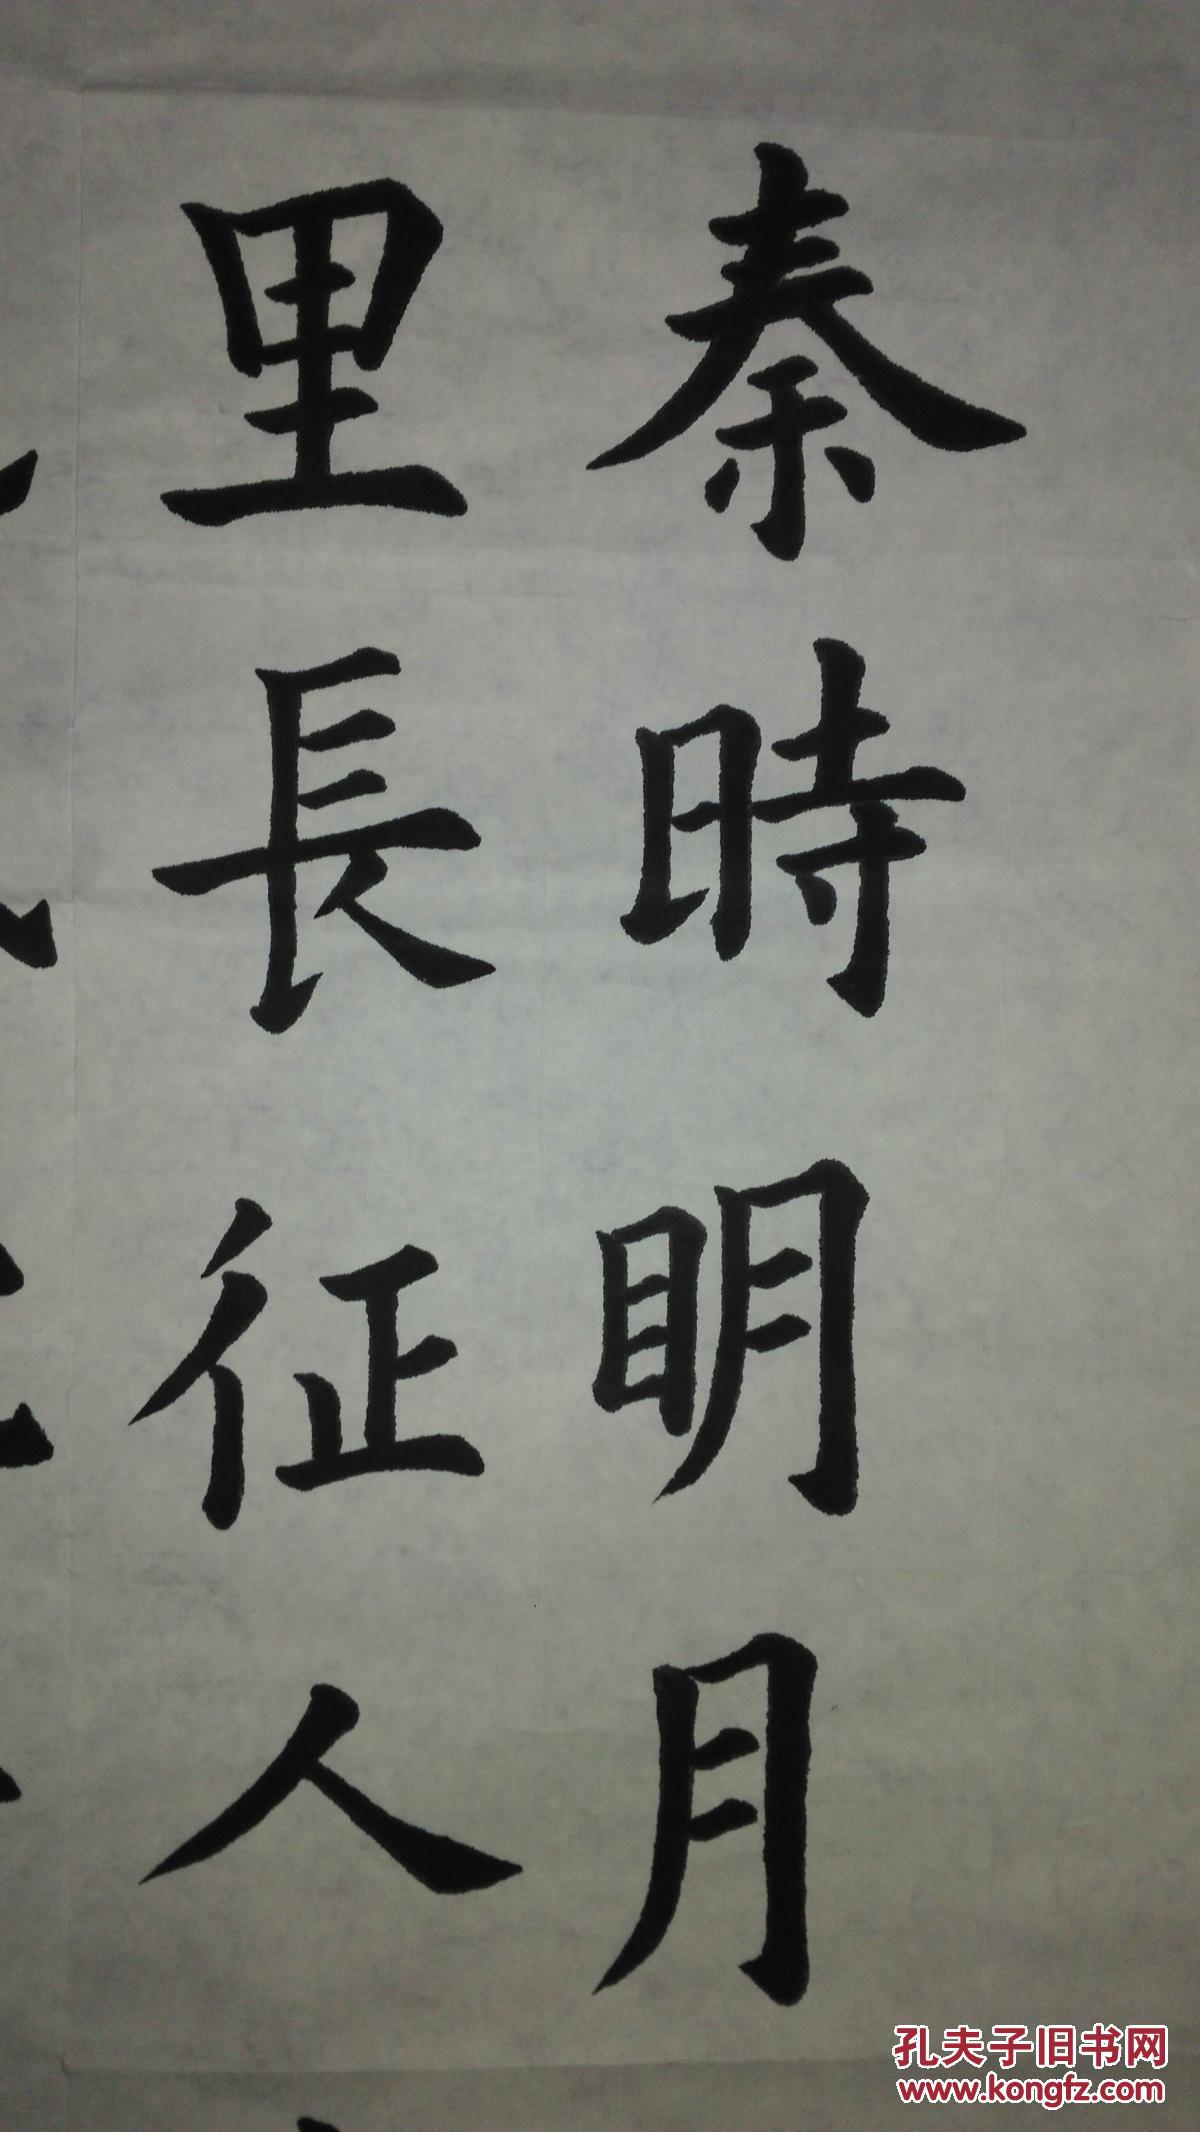 秦時明月
里長征人
孔夫子旧书网
www.kongfz.com